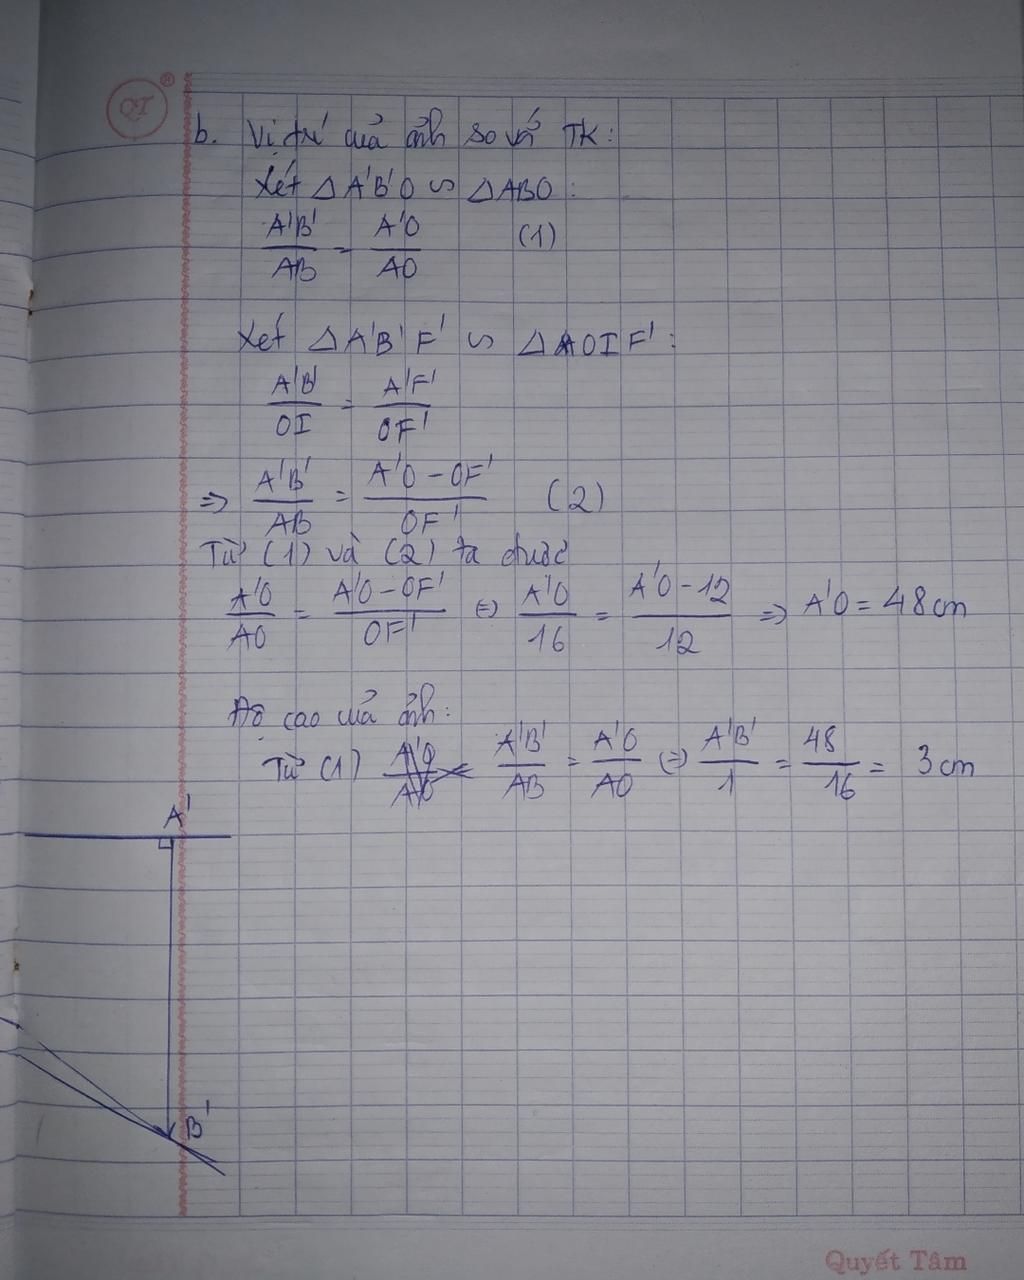 QT ®
b. Vị trí của ảnh so với TK:
Xét Δ A'B'O ∽ ΔABO:
A'B'/AB = A'O/AO (1)
Xét Δ A'B'F' ∽ Δ OIF':
A'B'/OI = A'F'/OF'
=> A'B'/AB = A'O - OF'/OF' (2)
Từ (1) và (2) ta được
A'O/AO = A'O - OF'/OF' <=> A'O/16 = A'O - 12/12 => A'O = 48cm
Độ cao của ảnh:
Từ (1) A'B'/AB = A'O/AO <=> A'B'/1 = 48/16 = 3cm
A'
B'
Quyết Tâm